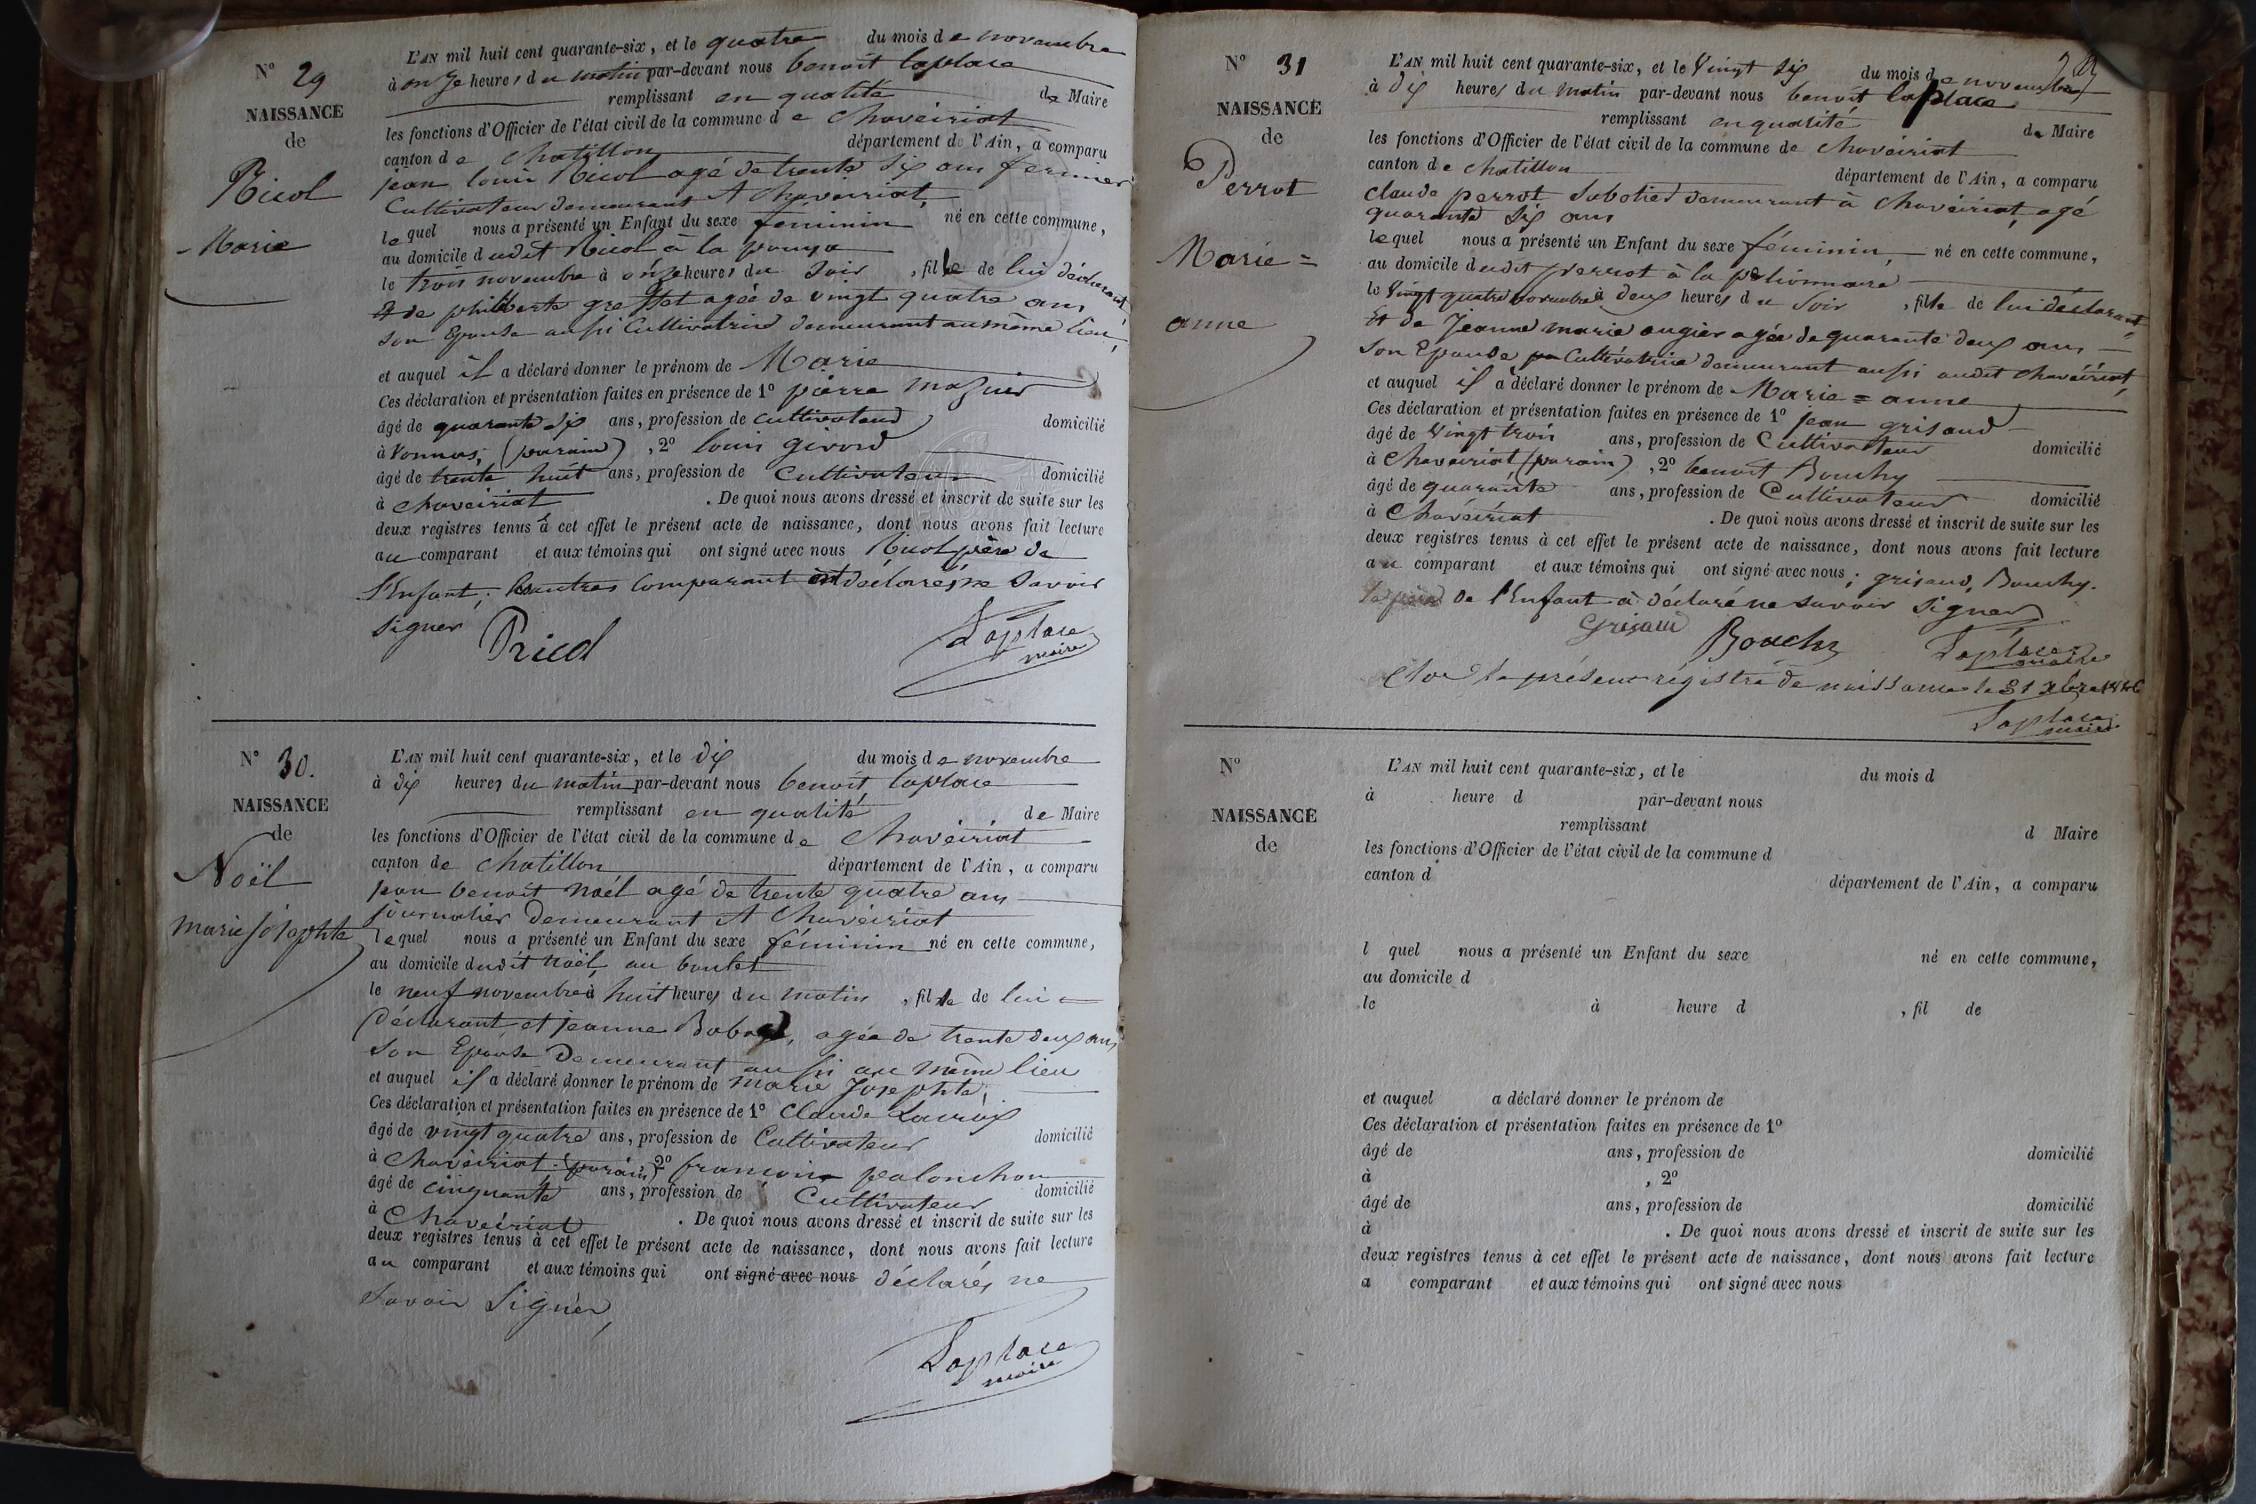 N° 29
NAISSANCE
de
Ricol
Marie
L'AN mil huit cent quarante-six, et le quatre du mois de novembre
à onze heures du matin par-devant nous benoit laplace
remplissant en qualité de Maire
les fonctions d'Officier de l'état civil de la commune de Chaveiriat
canton de Chatillon département de l'Ain, a comparu
jean louis Ricol agé de trente six ans fermier
Cultivateur demeurant A Chaveiriat,
lequel nous a présenté un Enfant du sexe féminin né en cette commune,
au domicile dudit Ricol à la
le trois novembre à onze heures du soir, fille de lui déclarant
et de philiberte greffet agée de vingt quatre ans
son Epouse aussi Cultivatrice demeurant au même lieu,
et auquel il a déclaré donner le prénom de Marie
Ces déclaration et présentation faites en présence de 1° pierre mozuir
âgé de quarante six ans, profession de cultivateur domicilié
à Vonnas, (parain), 2° louis girord
âgé de trente huit ans, profession de Cultivateur domicilié
à Chaveiriat. De quoi nous avons dressé et inscrit de suite sur les
deux registres tenus à cet effet le présent acte de naissance, dont nous avons fait lecture
au comparant et aux témoins qui ont signé avec nous Ricol père de
l'Enfant; autres comparant ont déclarés ne savoir
signer
Ricol
Laplace
maire
N° 30.
NAISSANCE
de
Noël
marie josephte
L'AN mil huit cent quarante-six, et le dix du mois de novembre
à dix heures du matin par-devant nous benoit laplace
remplissant en qualité de Maire
les fonctions d'Officier de l'état civil de la commune de Chavéiriat
canton de Chatillon département de l'Ain, a comparu
benoit noël agé de trente quatre ans
journalier demeurant A Chavéiriat
lequel nous a présenté un Enfant du sexe féminin né en cette commune,
au domicile dudit noël, au boulet
le neuf novembre à huit heures du matin, fille de lui
déclarant et jeanne, agée de trente deux ans
son Epouse demeurant aussi au même lieu
et auquel il a déclaré donner le prénom de marie Josephte,
Ces déclaration et présentation faites en présence de 1° Claude Lacroix
âgé de vingt quatre ans, profession de Cultivateur domicilié
à Chavéiriat (parain) 2° françois palonchon
âgé de cinquante ans, profession de Cultivateur domicilié
à Chavéiriat. De quoi nous avons dressé et inscrit de suite sur les
deux registres tenus à cet effet le présent acte de naissance, dont nous avons fait lecture
au comparant et aux témoins qui ont signé avec nous déclarés ne
savoir signer,
Laplace
maire
N° 31
NAISSANCE
de
Perrot
Marie =
anne
L'AN mil huit cent quarante-six, et le Vingt six du mois de novembre
à dix heures du matin par-devant nous benoit laplace
remplissant en qualité de Maire
les fonctions d'Officier de l'état civil de la commune de Chaveiriat
canton de Chatillon département de l'Ain, a comparu
Claude perrot Sabotier demeurant à Chavéiriat, agé
quarante six ans
lequel nous a présenté un Enfant du sexe féminin, né en cette commune,
au domicile dudit perrot à la
le Vingt quatre novembre à deux heures du soir, fille de lui déclarant
Et de Jeanne marie augier agée de quarante deux ans
son Epouse Cultivatrice demeurant aussi audit Chavéiriat,
et auquel il a déclaré donner le prénom de Marie = anne
Ces déclaration et présentation faites en présence de 1° jean grisaud
âgé de Vingt trois ans, profession de Cultivateur domicilié
à Chaveiriat (parain), 2° benoit Bouchy
âgé de quarante ans, profession de Cultivateur domicilié
à Chavéiriat. De quoi nous avons dressé et inscrit de suite sur les
deux registres tenus à cet effet le présent acte de naissance, dont nous avons fait lecture
au comparant et aux témoins qui ont signé avec nous; grisaud, Bouchy.
le père de l'Enfant a déclaré ne savoir signer
Grisaud
Bouchy
Laplace
maire
Clos le présent régistre de naissance le 31 xbre 1846
Laplace
maire
N°
NAISSANCE
de
L'AN mil huit cent quarante-six, et le du mois d
à heure d par-devant nous
remplissant d Maire
les fonctions d'Officier de l'état civil de la commune d
canton d département de l'Ain, a comparu
l quel nous a présenté un Enfant du sexe né en cette commune,
au domicile d
le à heure d, fil de
et auquel a déclaré donner le prénom de
Ces déclaration et présentation faites en présence de 1°
âgé de ans, profession de domicilié
à, 2°
âgé de ans, profession de domicilié
à. De quoi nous avons dressé et inscrit de suite sur les
deux registres tenus à cet effet le présent acte de naissance, dont nous avons fait lecture
a comparant et aux témoins qui ont signé avec nous